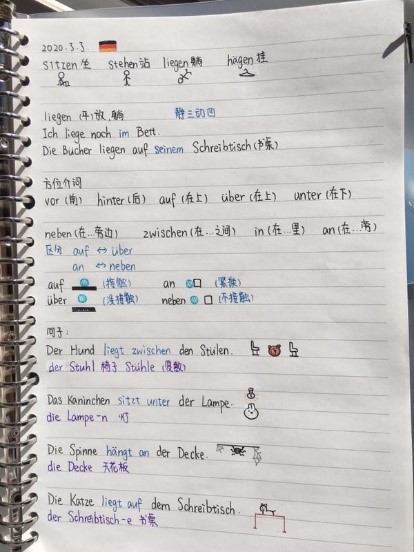 2020.3.3
sitzen 坐 stehen 站 liegen 躺 hägen 挂
liegen (平)放,躺 静三动四
Ich liege noch im Bett.
Die Bücher liegen auf seinem Schreibtisch (书桌)
方位介词
vor (前) hinter (后) auf (在上) über (在上) unter (在下)
neben (在...旁边) zwischen (在...之间) in (在...里) an (在...旁)
区分 auf ↔ über
an ↔ neben
auf (接触) an (紧挨)
über (没接触) neben (不接触)
句子:
Der Hund liegt zwischen den Stülen.
der Stuhl 椅子 Stühle (复数)
Das Kaninchen sitzt unter der Lampe.
die Lampe-n 灯
Die Spinne hängt an der Decke.
die Decke 天花板
Die Katze liegt auf dem Schreibtisch.
der Schreibtisch-e 书桌